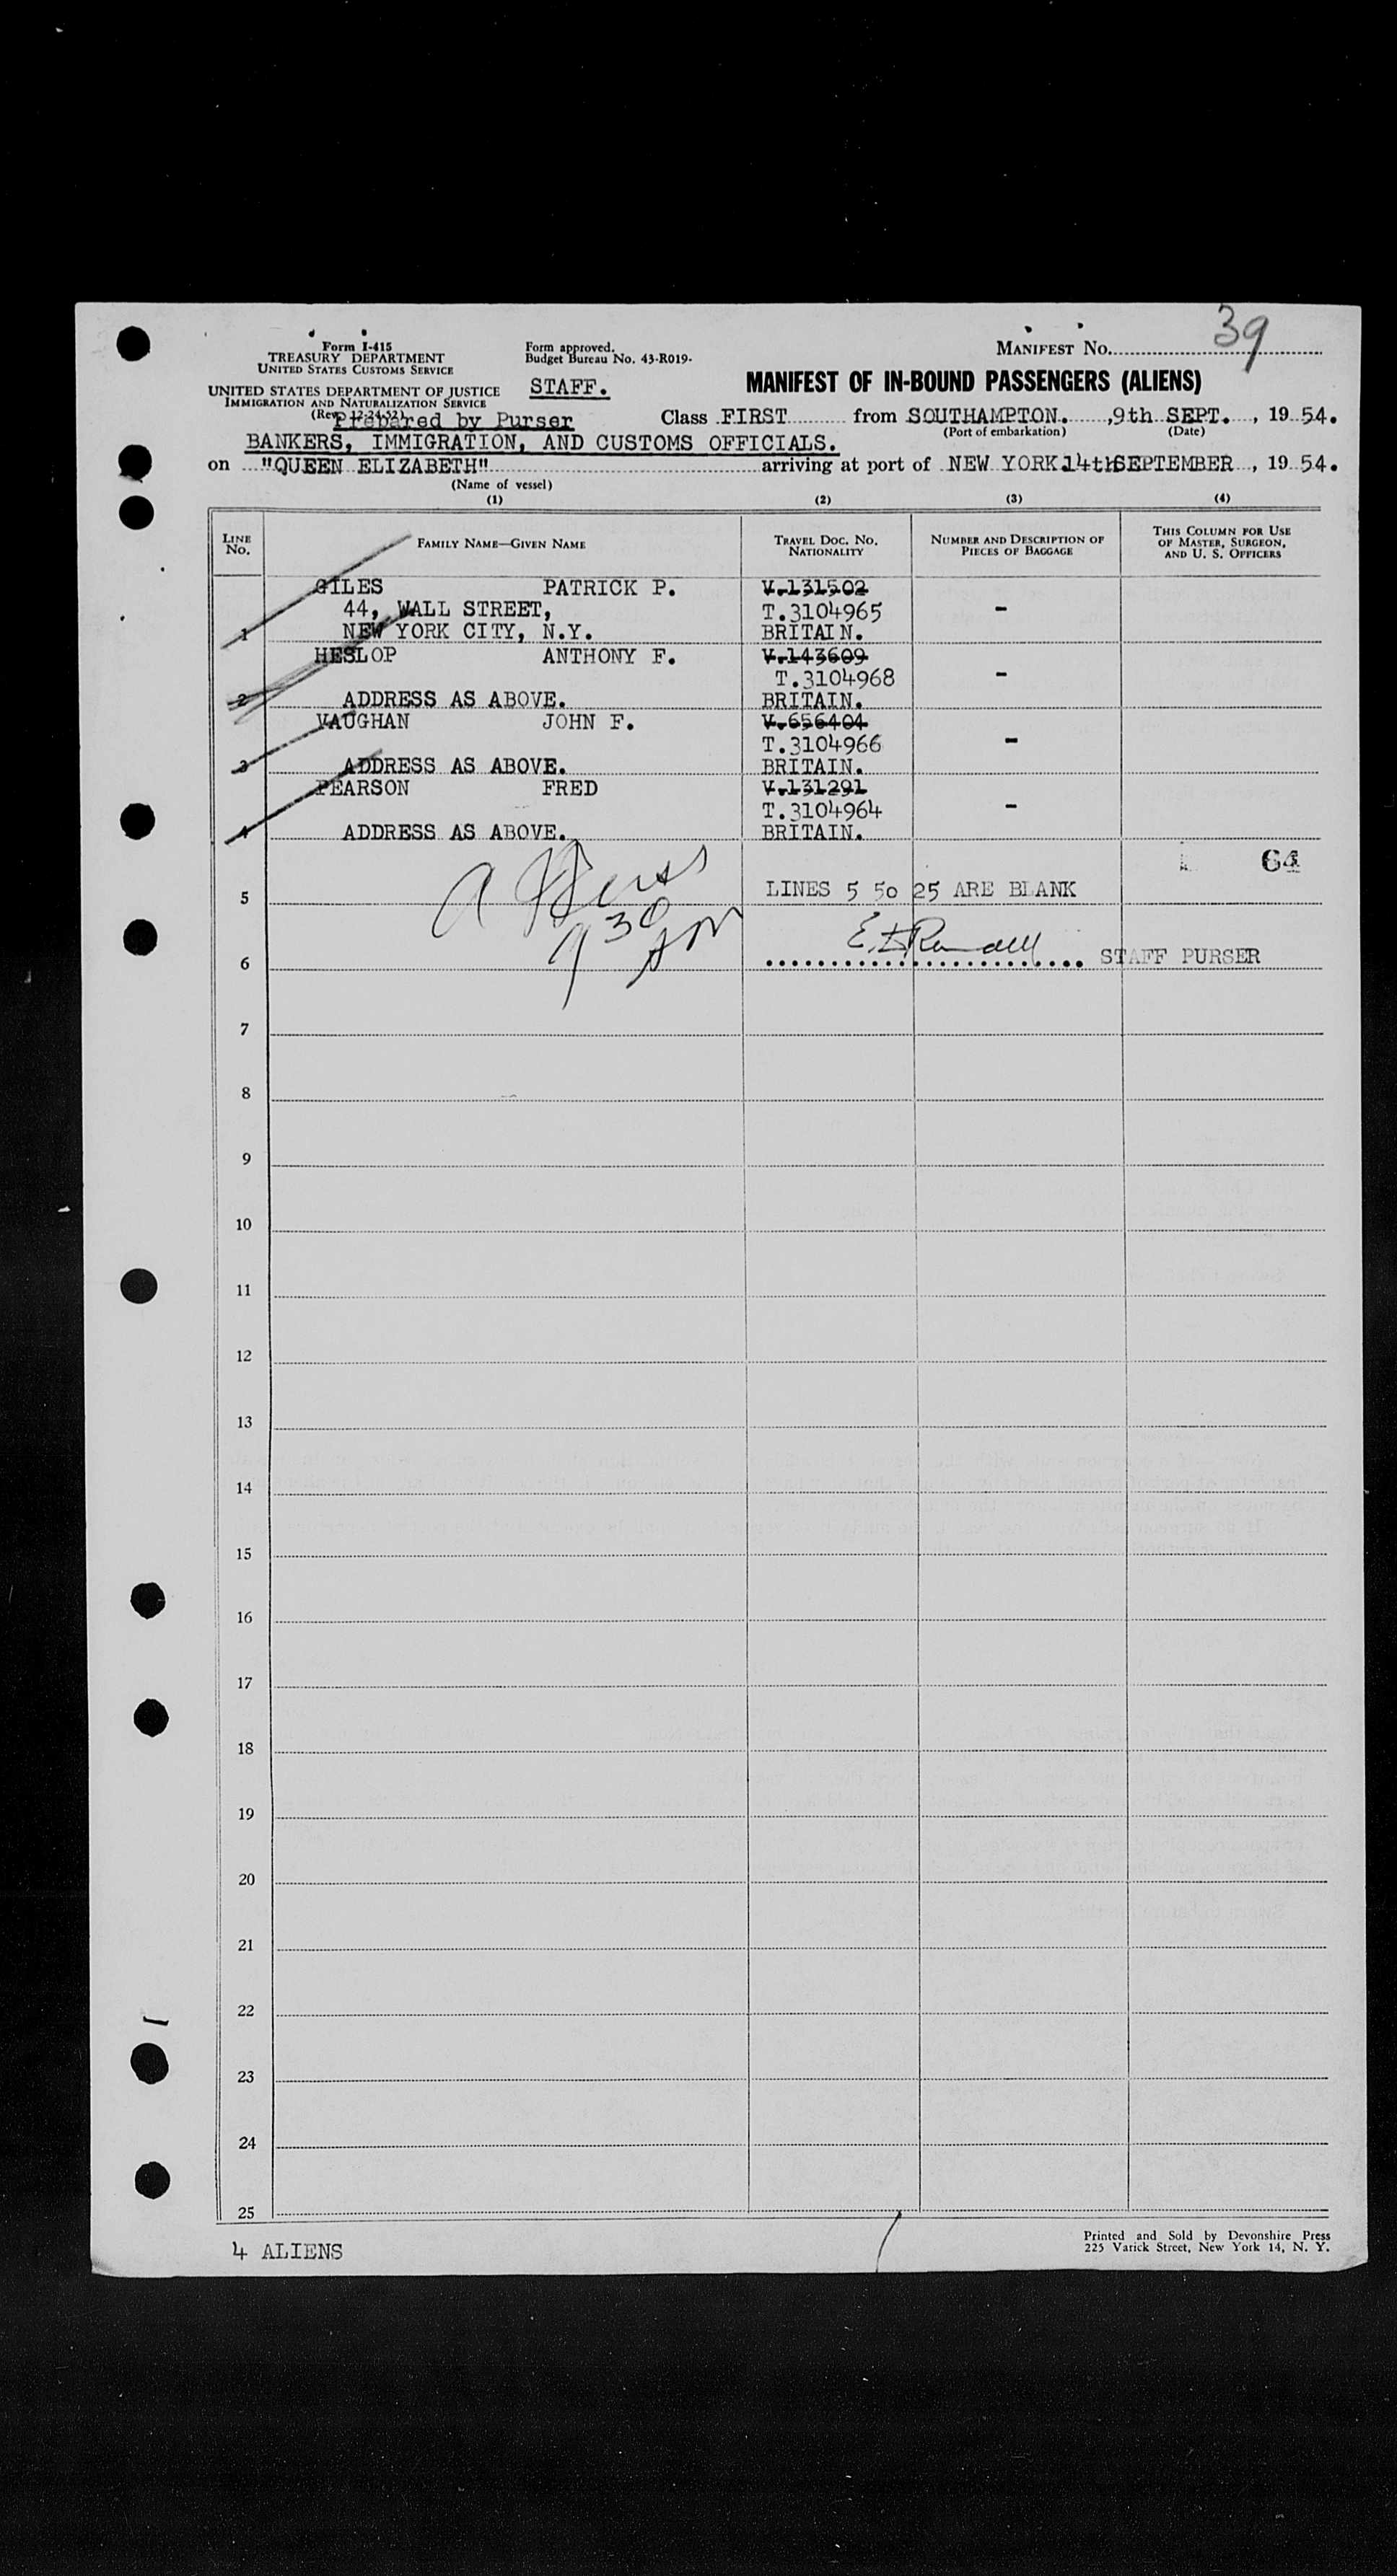 39
Form I-415
TREASURY DEPARTMENT
UNITED STATES CUSTOMS SERVICE
UNITED STATES DEPARTMENT OF JUSTICE
IMMIGRATION AND NATURALIZATION SERVICE
(Rev. 12-24-52)
Form approved.
Budget Bureau No. 43-R019-
STAFF.
MANIFEST NO.
MANIFEST OF IN-BOUND PASSENGERS (ALIENS)
Prepared by Purser
Class FIRST from SOUTHAMPTON. , 9th SEPT. , 1954.
(Port of embarkation) (Date)
BANKERS, IMMIGRATION, AND CUSTOMS OFFICIALS.
on "QUEEN ELIZABETH" arriving at port of NEW YORK 14th SEPTEMBER , 1954.
(Name of vessel)
(1) (2) (3) (4)
LINE NO. FAMILY NAME—GIVEN NAME TRAVEL DOC. NO. NATIONALITY NUMBER AND DESCRIPTION OF PIECES OF BAGGAGE THIS COLUMN FOR USE OF MASTER, SURGEON, AND U. S. OFFICERS
GILES PATRICK P. V.131502
44, WALL STREET, T.3104965 -
1 NEW YORK CITY, N.Y. BRITAIN.
HESLOP ANTHONY F. V.143609
T.3104968 -
2 ADDRESS AS ABOVE. BRITAIN.
VAUGHAN JOHN F. V.656404
T.3104966 -
3 ADDRESS AS ABOVE. BRITAIN.
PEARSON FRED V.131291
T.3104964 -
4 ADDRESS AS ABOVE. BRITAIN.
64
5 LINES 5 50 25 ARE BLANK
930
6 STAFF PURSER
7
8
9
10
11
12
13
14
15
16
17
18
19
20
21
22
23
24
25
4 ALIENS
Printed and Sold by Devonshire Press
225 Varick Street, New York 14, N. Y.